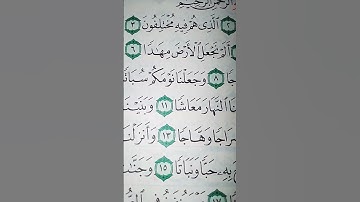 الرَّحْمَٰنِ الرَّحِيمِ
٢ ٱلَّذِي هُمْ فِيهِ مُخْتَلِفُونَ ٣
أَلَمْ نَجْعَلِ ٱلْأَرْضَ مِهَٰدًا ٦
جًا ٨ وَجَعَلْنَا نَوْمَكُمْ سُبَاتًا
نَا ٱلنَّهَارَ مَعَاشًا ١١ وَبَنَيْنَ
رَاجًا وَهَّاجًا ١٣ وَأَنزَلْنَ
بِهِۦ حَبًّا وَنَبَاتًا ١٥ وَجَنَّٰ